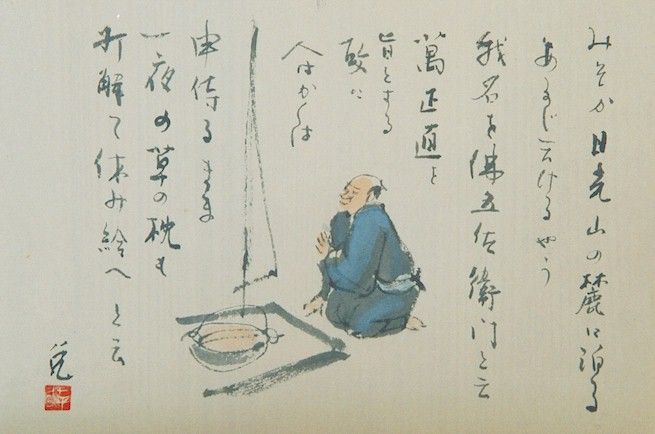 みそか日光山の麓に泊る
あるじ云けるやう
我名を佛五佐衛門と云
萬正直を
旨とする
故に
人はかくは
申侍るまま
一夜の草の枕も
打解て休み給へと云